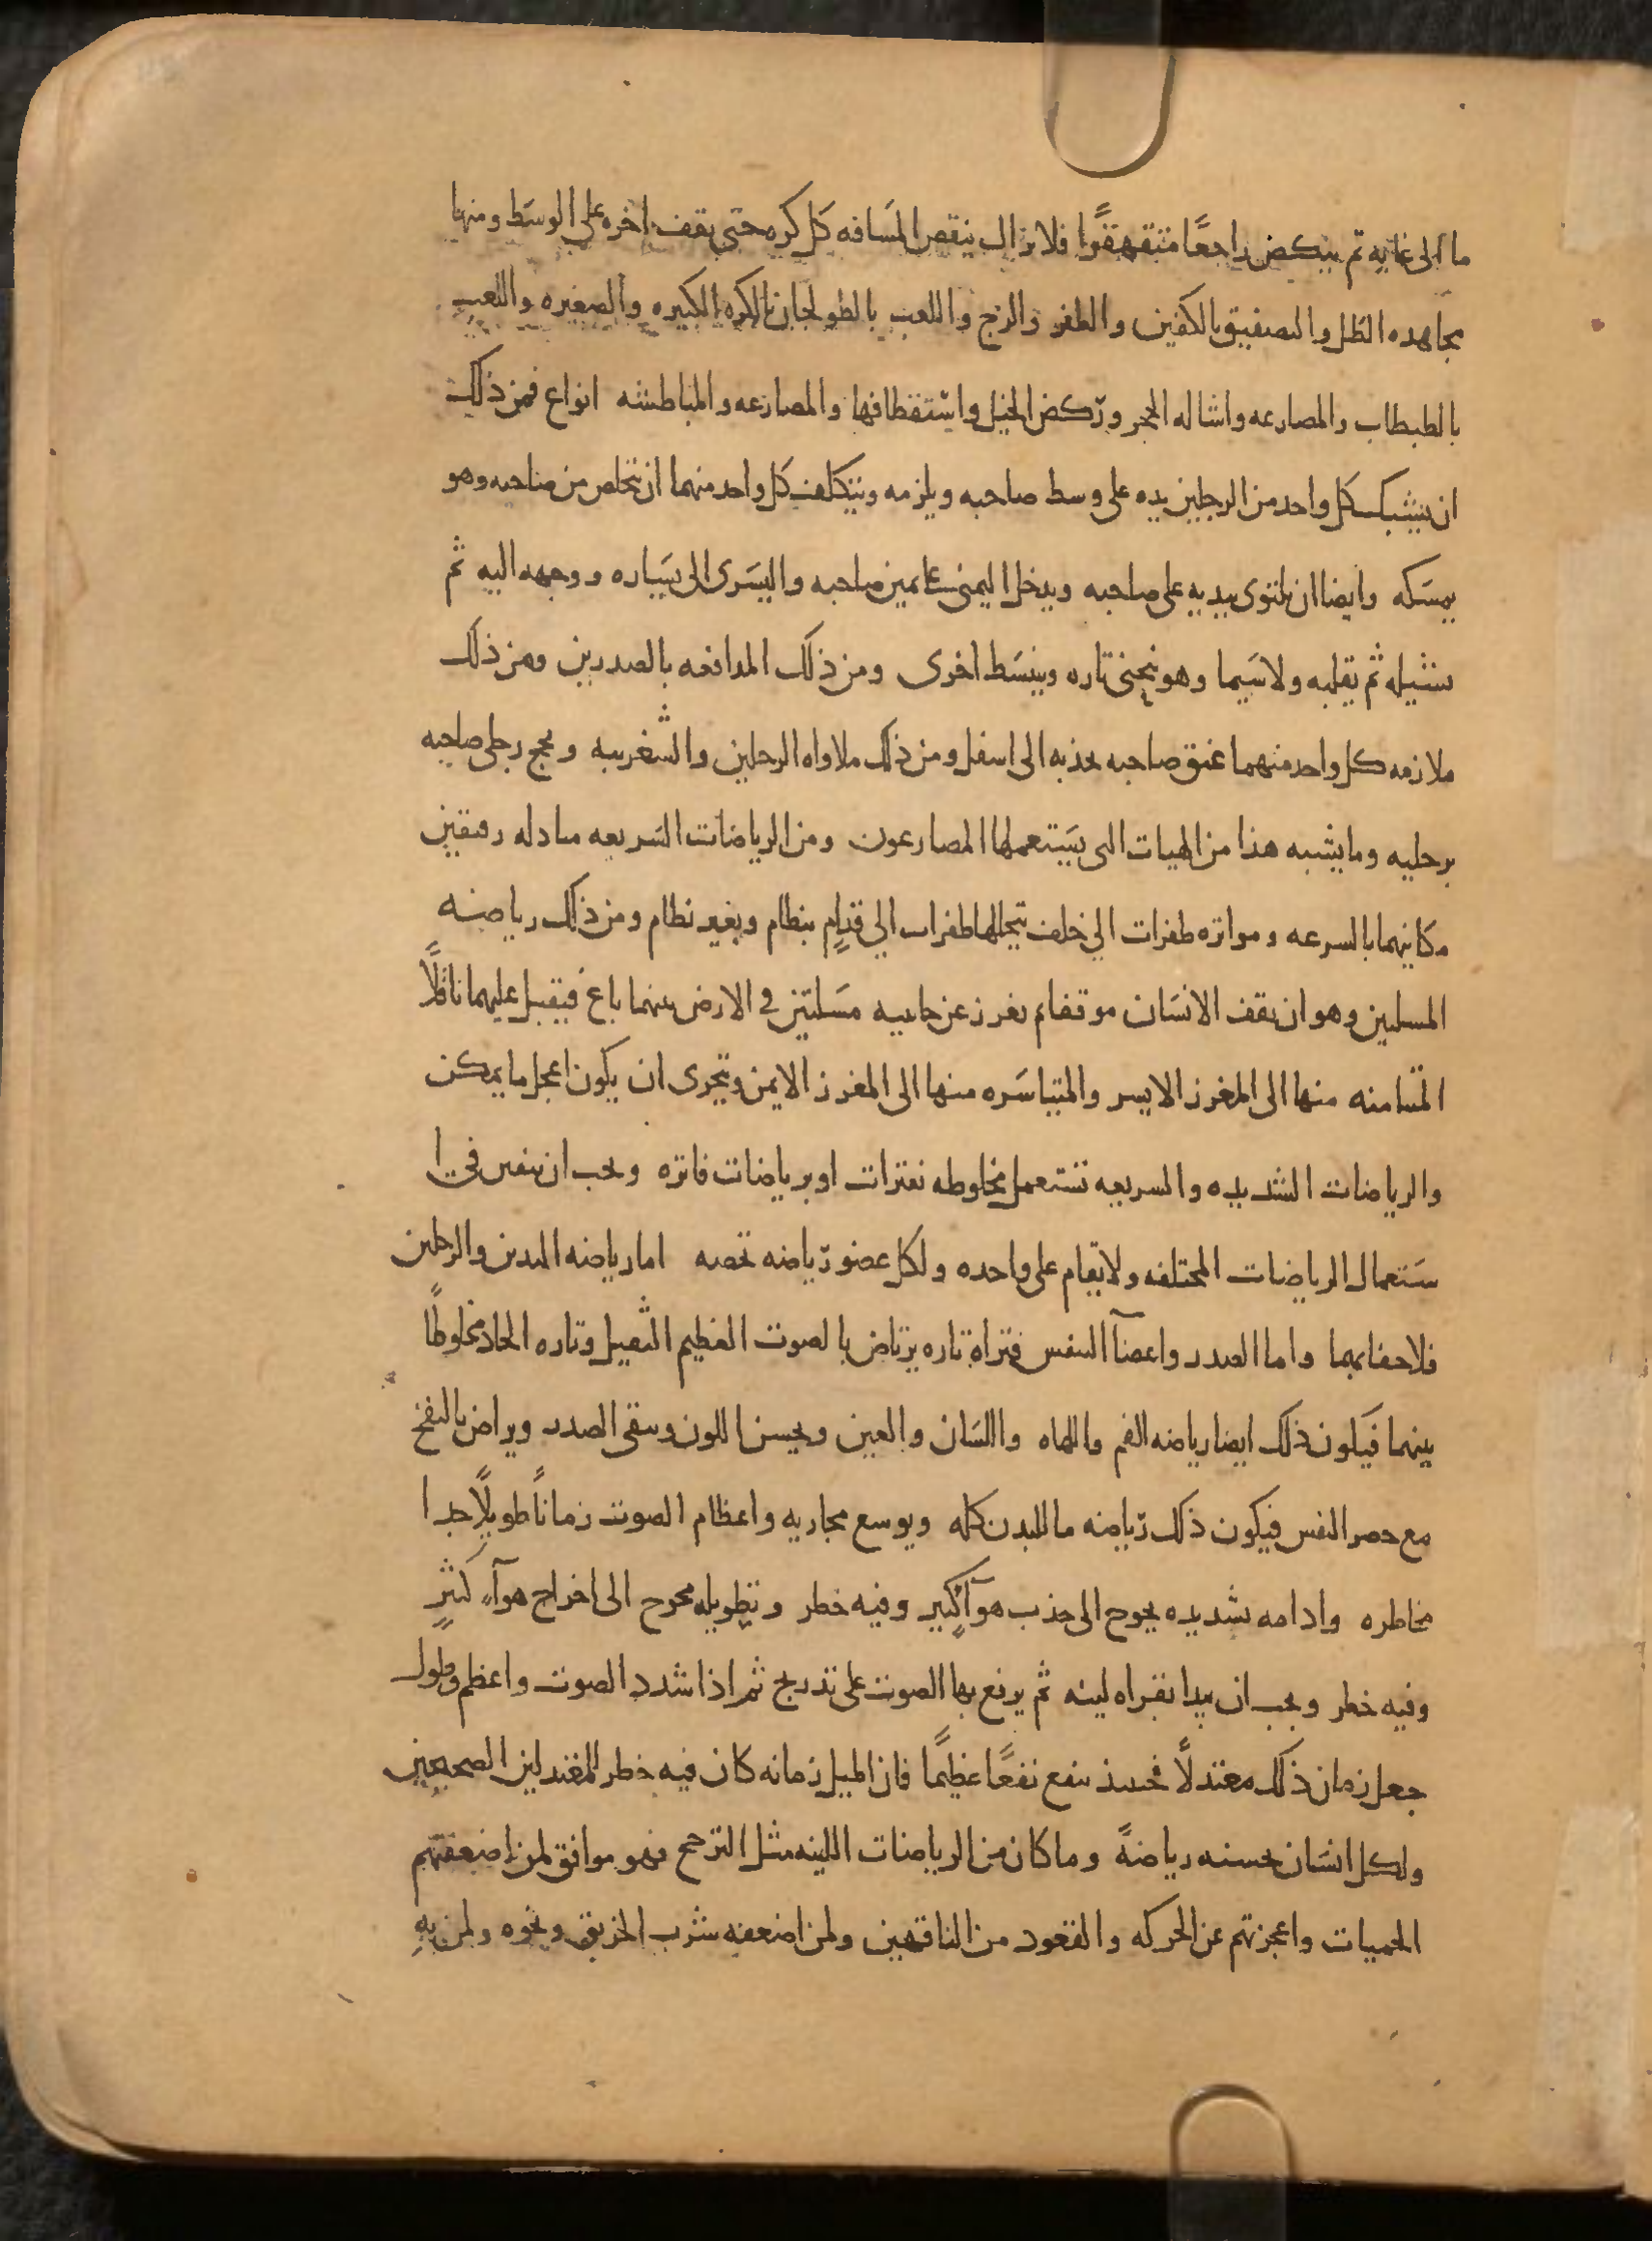 ما الى غايه ثم ينكض راجعًا متقهقرًا فلا يزال ينقص المسَافه كل كره حتى يقف اخره على الوسَط ومنها
مجاهده الظل والتصفيق بالكفين والطفر والزج واللعب بالصولجان بالكره الكبيره والصغيره واللعب
بالطبطاب والمصارعه واشاله الحجر وركض الخيل واستقطافها والمصارعه والمباطشه انواع فمن ذلك
ان يشبك كل واحد من الرجلين يده على وسط صاحبه ويلزمه ويتكلف كل واحد منهما ان يتخلص من صاحبه وهو
يمسَكه وايضا ان يلتوى بيديه على صاحبه ويدخل اليمنى الى يمين صاحبه واليسَرى الى يسَاره ووجهه اليه ثم
يشيله ثم يقلبه ولا سَيما وهو ينحنى تاره وينبسَط اخرى ومن ذلك المدافعه بالصدرين ومن ذلك
ملازمه كل واحد منهما عنق صاحبه يجذبه الى اسفل ومن ذلك ملاواه الرجلين والشغزبيه وفحج رجلى صاحبه
برجليه وما يشبه هذا من الهيات التى يسَتعملها المصارعون ومن الرياضات السَريعه مبادله رفيقين
مكانيهما بالسرعه ومواتره طفرات الى خلف يتخللها طفرات الى قدام بنظام وبغير نظام ومن ذلك رياضه
المسلتين وهو ان يقف الانسَان موقفا ثم يغرز عن جانبيه مسَلتين فى الارض بينهما باع فيقبل عليهما ناقلًا
المتيامنه منها الى المغرز الايسر والمتياسَره منها الى المغرز الايمن ويتحرى ان يكون اعجل ما يمكن
والرياضات الشديده والسريعه تستعمل مخلوطه بفترات او برياضات فاتره ويجب ان يتفنن فى ا
سَتعمال الرياضات المختلفه ولا يقام على واحده ولكل عضو رياضه تخصه اما رياضه اليدين والرجلين
فلا خفا بها واما الصدر واعضآ التنفس فتراة تاره يرتاض بالصوت العظيم الثقيل وتاره الحاد مخلوطًا
بينهما فيكون ذلك ايضا رياضه الفم واللهاه واللسَان والعين ويحسن اللون وينقى الصدر ويراض بالنفخ
مع حصر النفس فيكون ذلك رياضه ما للبدن كله ويوسع مجاريه واعظام الصوت زمانًا طويلًا جدا
مخاطره وادامه شديده يحوج الى جذب هوآ كثير وفيه خطر وتطويله محوج الى اخراج هوآء كثير
وفيه خطر ويجب ان يبدا بقراه لينه ثم يرفع بها الصوت على تدريج ثم اذا شدد الصوت واعظم وطول
جعل زمان ذلك معتدلًا فحينئذ ينفع نفعًا عظيمًا فان اطيل زمانه كان فيه خطر للمعتدلين الصحيحين
ولكل انسَان بحسبه رياضهً وما كان من الرياضات اللينه مثل الترجح فهو موافق لمن اضعفتهم
الحميات واعجزتهم عن الحركه والقعود من الناقهين ولمن اضعفه شرب الخربق ونحوه ولمن به